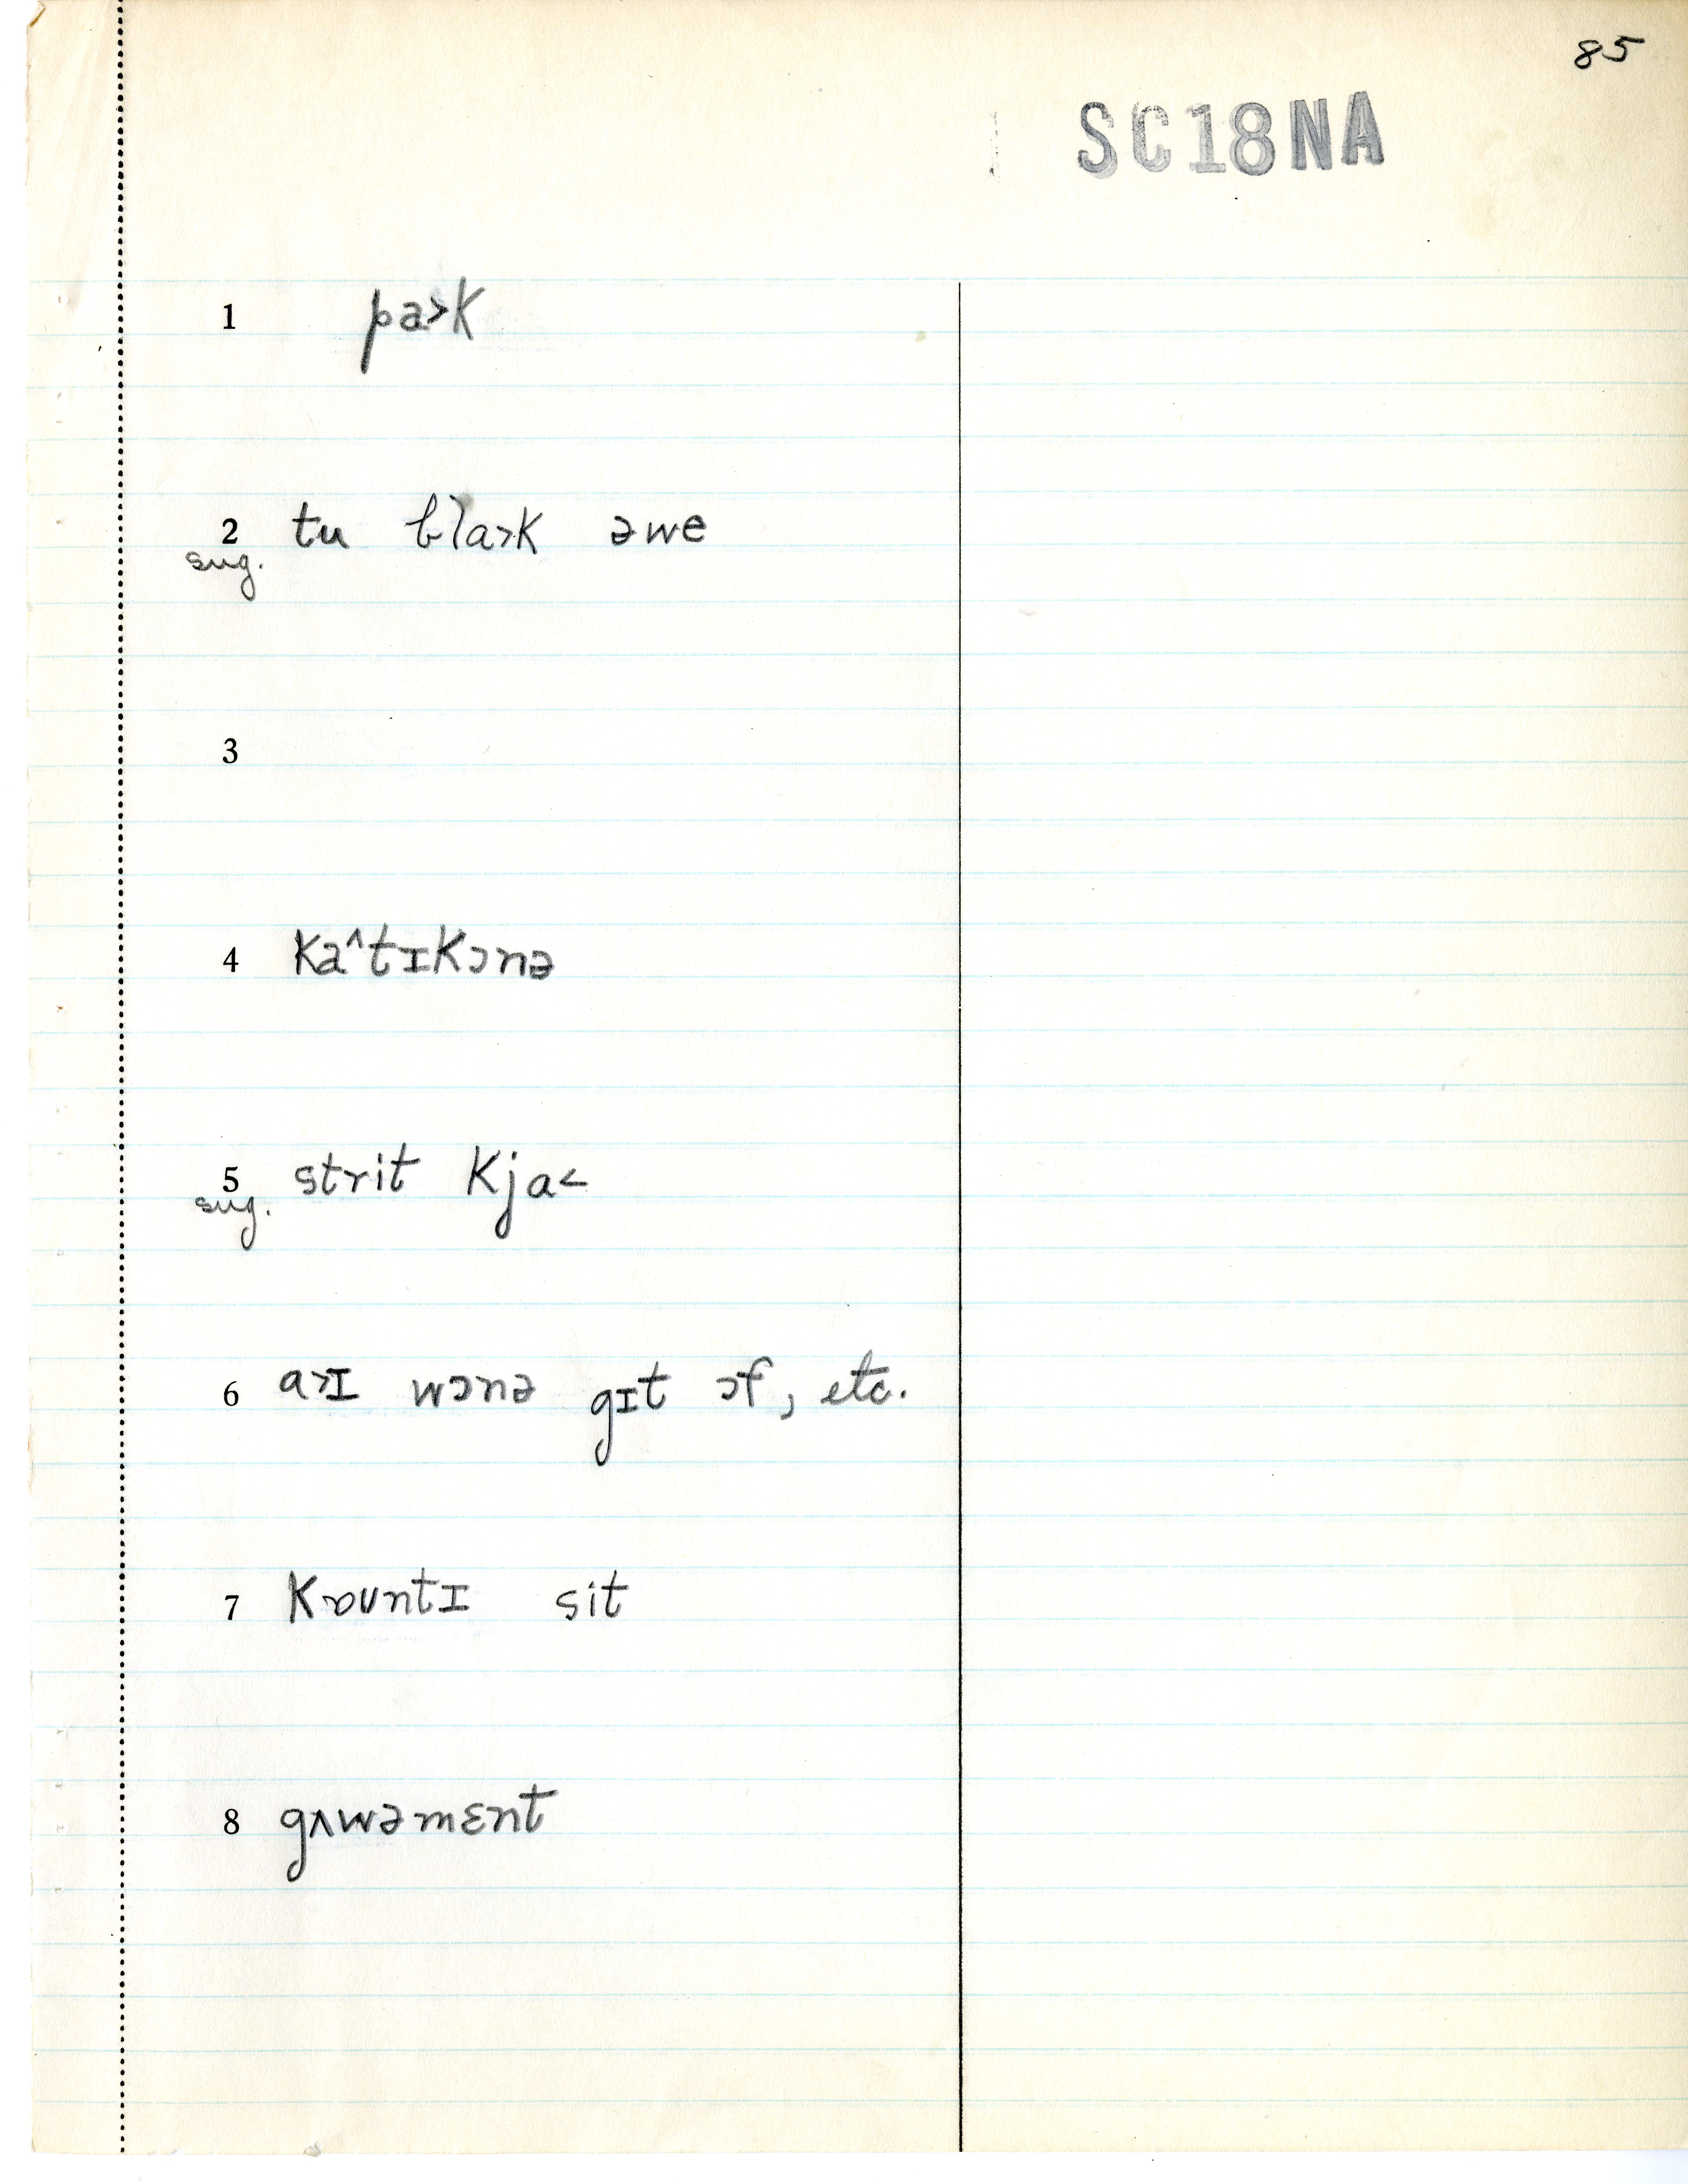 85
SC18NA
1 pa>k
2 tu bla>k əwe
sug.
3
4 ka^tɪkɔnə
5 strit kja<
sug.
6 a>ɪ wɔnə gɪt ɔf, etc.
7 kɒʊntɪ sit
8 gʌwəmɛnt